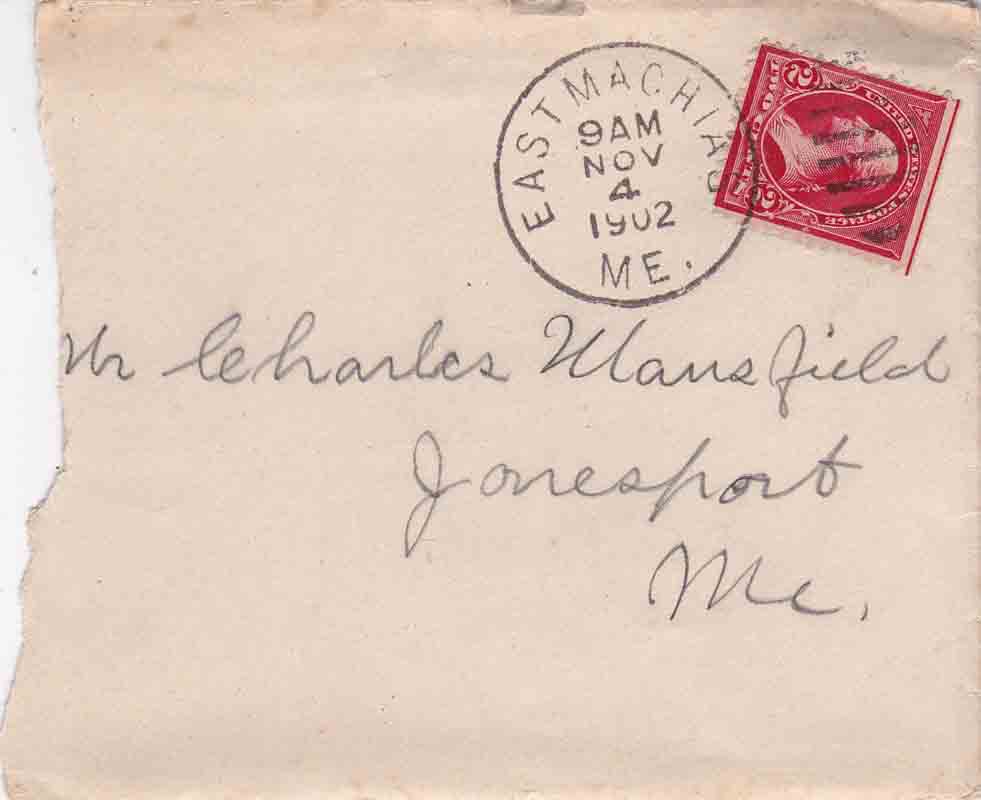 EAST MACHIAS
9AM
NOV
4
1902
ME.
UNITED STATES POSTAGE
2 2
Mr Charles Mansfield
Jonesport
Me.